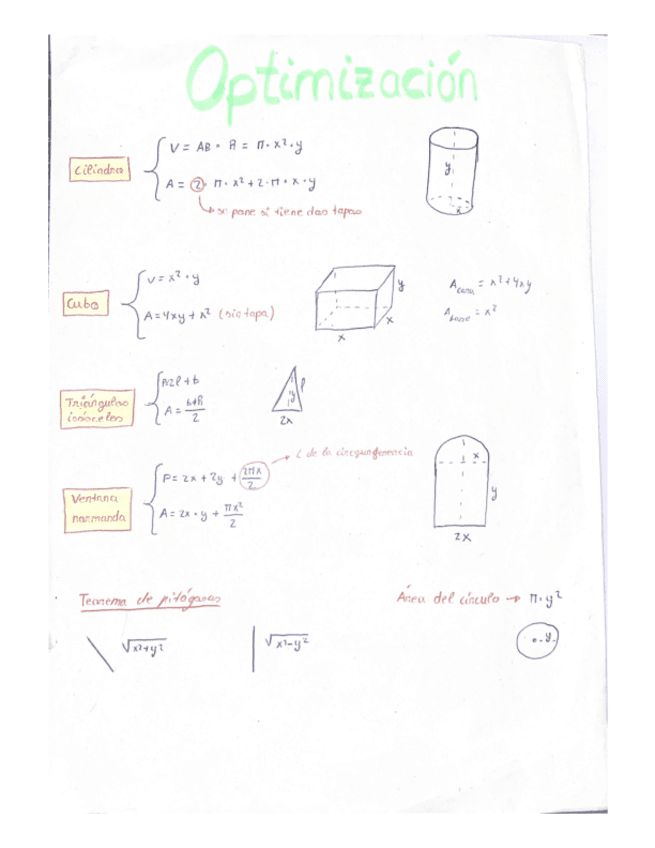 Optimización
Cilindro
V = AB · R = π · x² · y
A = 2 · π · x² + 2 · π · x · y
→ se pone si tiene dos tapas
y
x
Cubo
V = x² · y
A = 4xy + x² (sin tapa)
y
x
x
A = x² + 4xy
A base = x²
Triángulos
isósceles
2l + b
A = b·h/2
l
y
2x
Ventana
normanda
P = 2x + 2y + 2πx/2
→ L de la circunferencia
A = 2x · y + πx²/2
x
y
2x
Teorema de pitágoras
Área del círculo → π · y²
√x²+y²
√x²-y²
y